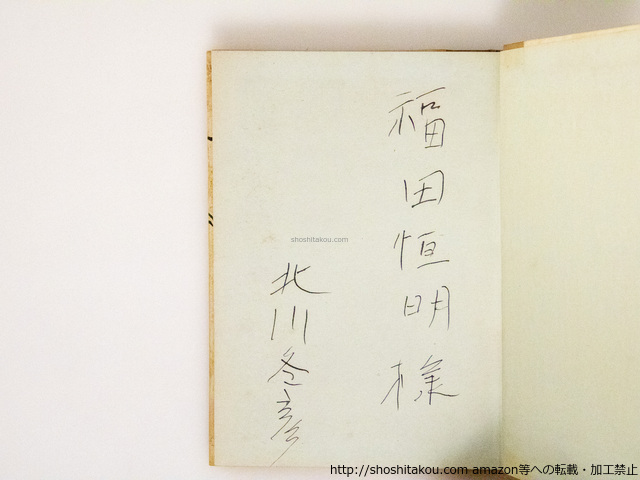 福田恒明様
北川冬彦
shoshitakou.com
http://shoshitakou.com amazon等への転載・加工禁止